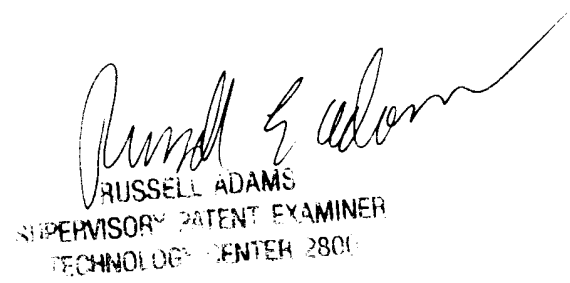 Russell E Adams
RUSSELL ADAMS
SUPERVISORY PATENT EXAMINER
TECHNOLOGY CENTER 2800